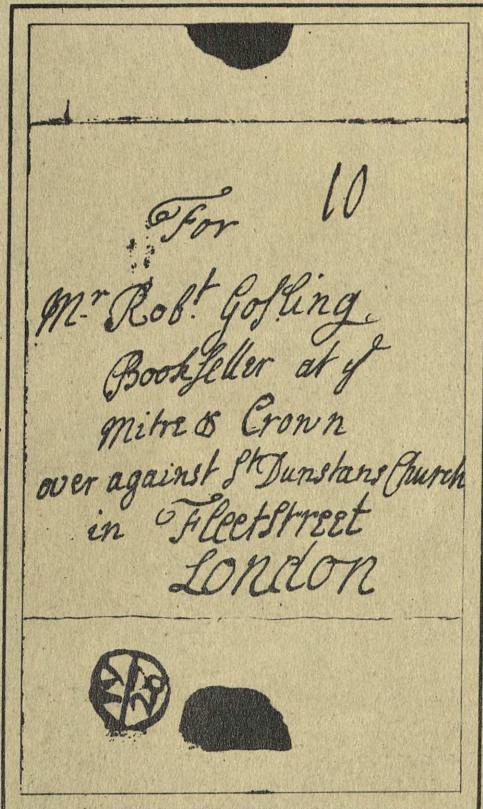 For 10
Mr Robt. Gosling
Bookseller at ye
Mitre & Crown
over against St Dunstans Church
in Fleetstreet
London